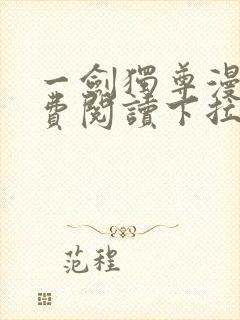 一劍獨尊漫
費閱讀下拉
范程